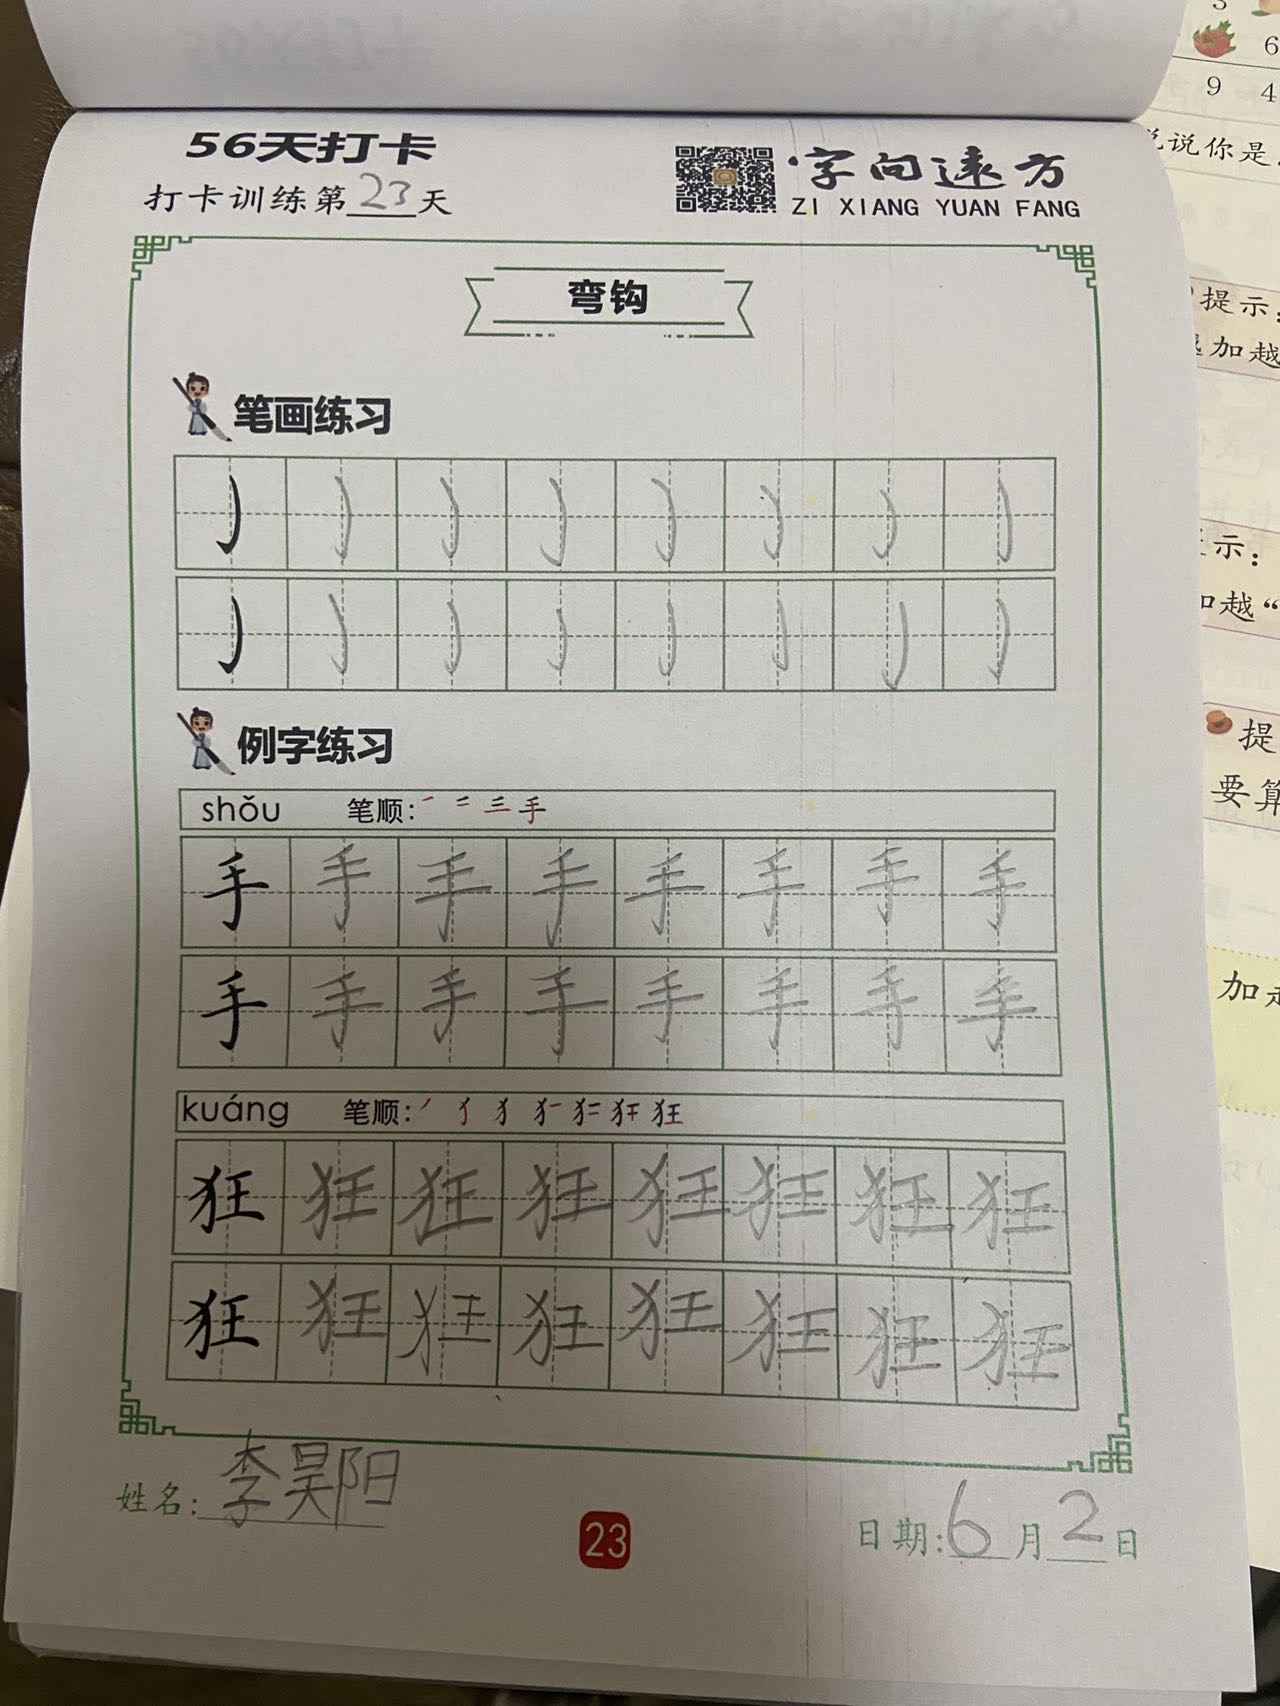 56天打卡
打卡训练第23天
字向远方
ZI XIANG YUAN FANG
弯钩
笔画练习
例字练习
shǒu 笔顺:
手 手 手 手 手 手 手 手
手 手 手 手 手 手 手 手
kuáng 笔顺:
狂 狂 狂 狂 狂 狂 狂 狂
狂 狂 狂 狂 狂 狂 狂 狂
姓名:李昊阳
23
日期:6月2日
3
6
9 4
说说你是
提示:
加越
示:
加越“
提
要算
加